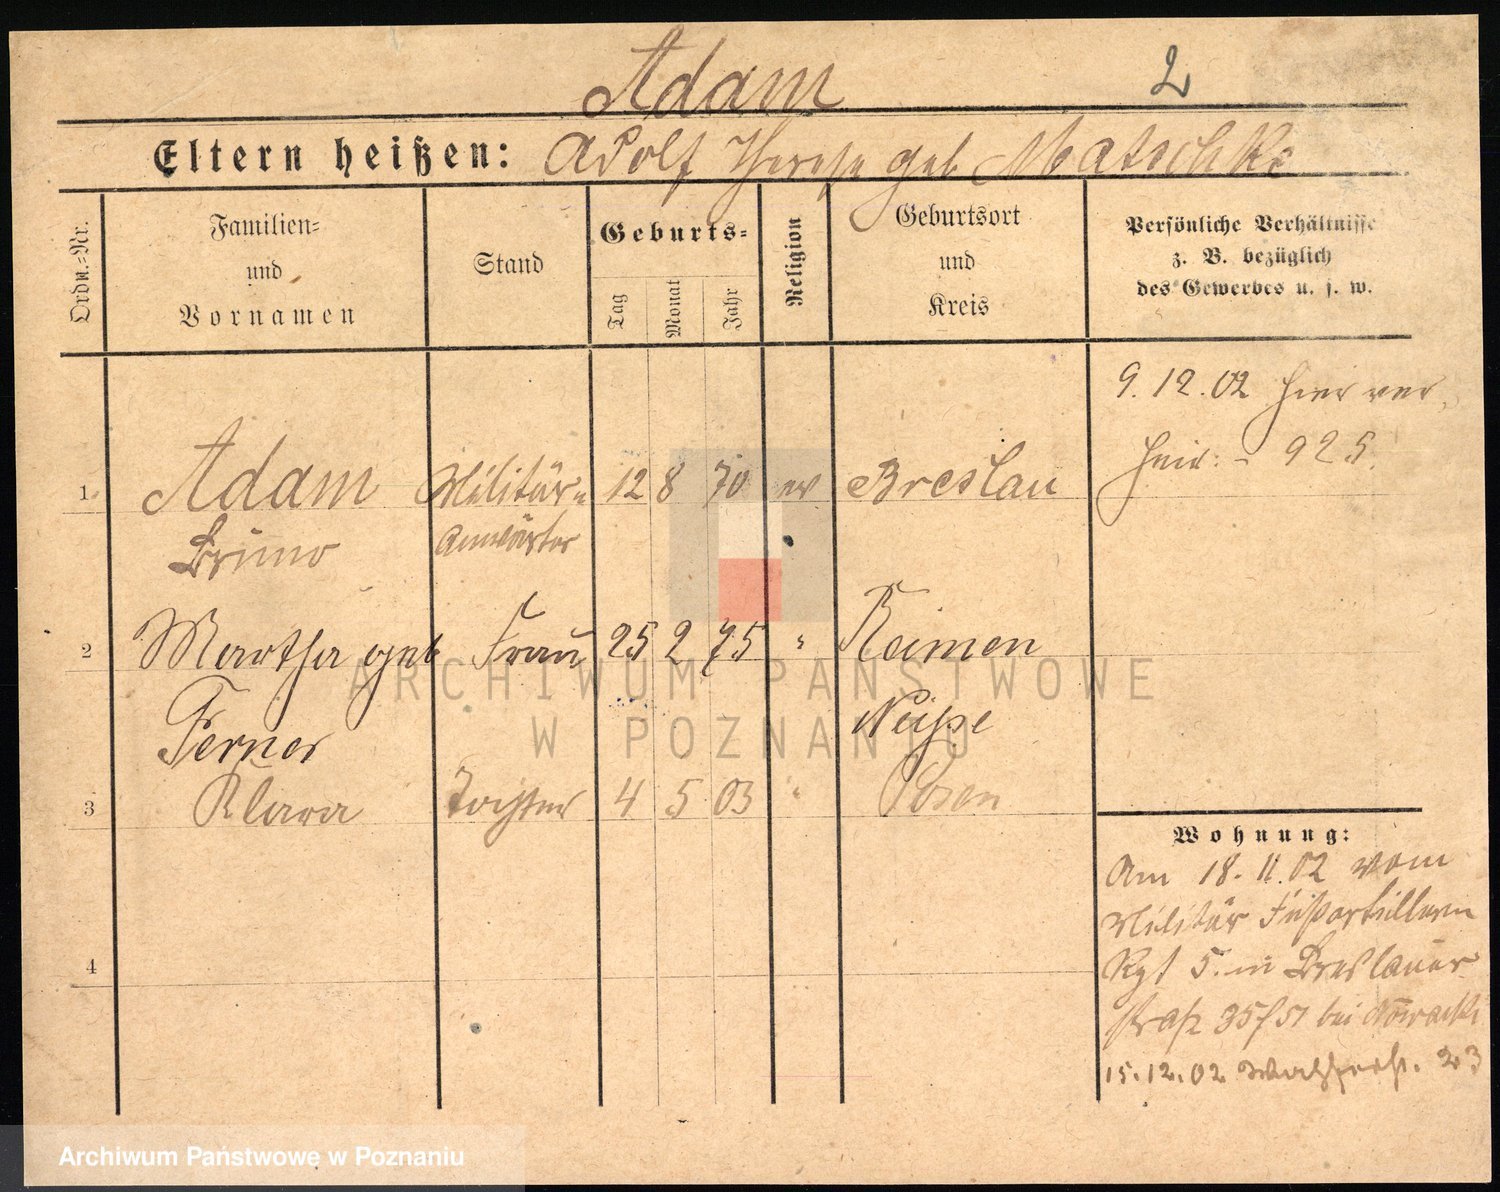 Adam
2
Eltern heißen: Adolf Therese geb Matschke
Ordn.-Nr.
Familien-
und
Vornamen
Stand
Geburts-
Tag
Monat
Jahr
Religion
Geburtsort
und
Kreis
Persönliche Verhältnisse
z. B. bezüglich
des Gewerbes u. s. w.
9.12.02 hier ver
heir: - 925.
1. Adam Militär- 12 8 70 ev Breslau
Bruno Anwärter
2 Martha geb Frau 25 2 75 " Reimen
Ferner Neiße
3 Klara Tochter 4 5 03 " Posen
4
Wohnung:
Am 18.11.02 vom
Militär Fußartillerie
Rgt 5. in Breslauer
straße 35/51 bei Nowacki
15.12.02 23
ARCHIWUM PAŃSTWOWE
W POZNANIU
Archiwum Państwowe w Poznaniu